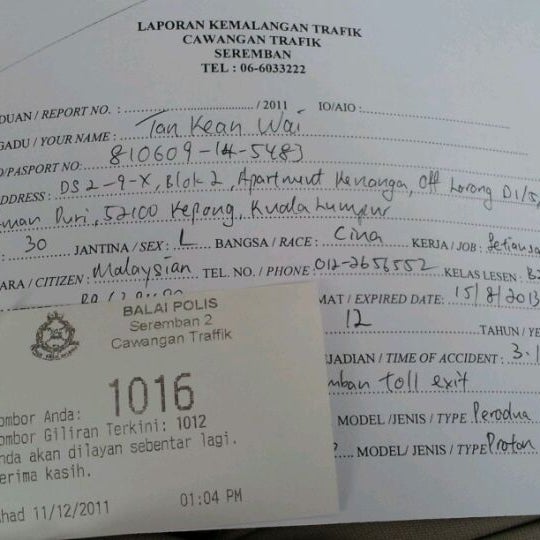 LAPORAN KEMALANGAN TRAFIK
CAWANGAN TRAFIK
SEREMBAN
TEL : 06-6033222
DUAN / REPORT NO. : / 2011 IO/AIO :
GADU / YOUR NAME : Tan Kean Wai
/PASPORT NO: 810609-14-5483
ADDRESS : DS2-9-X, Blok 2, Apartment Kenanga, Off Lorong D1/5,
man Puri, 52100 Kepong, Kuala Lumpur
: 30 JANTINA / SEX : L BANGSA / RACE : Cina KERJA / JOB : Setiausa
ARA / CITIZEN : Malaysian TEL. NO. / PHONE : 012-2656552 KELAS LESEN : B2
MAT / EXPIRED DATE: 15/8/2013
12 TAHUN / YE
JADIAN / TIME OF ACCIDENT : 3.1
mban toll exit
MODEL /JENIS / TYPE Perodua
MODEL/ JENIS / TYPE Proton
BALAI POLIS
Seremban 2
Cawangan Traffik
ombor Anda: 1016
ombor Giliran Terkini: 1012
nda akan dilayan sebentar lagi.
erima kasih.
Ahad 11/12/2011 01:04 PM